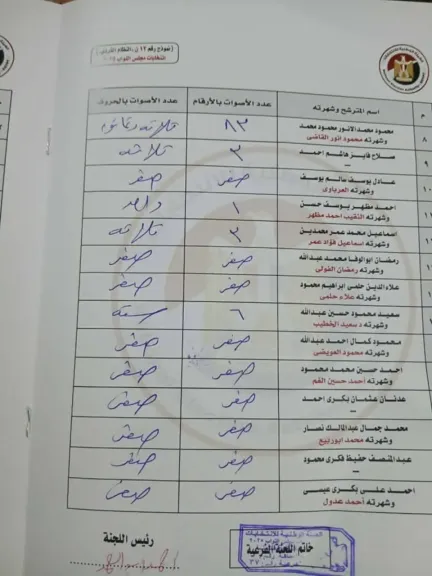 نموذج رقم ١٢ ن بالنظام الفردي
انتخابات مجلس النواب ٢٠٢٥
م
اسم المترشح وشهرته
عدد الأصوات بالأرقام
عدد الأصوات بالحروف
محمود محمد الانور محمود محمد
وشهرته محمود انور القاضى
٨٣
ثلاثة وثمانون
صلاح فايز هاشم احمد
--
٣
ثلاثة
عادل يوسف سالم يوسف
وشهرته العرباوى
صفر
صفر
احمد مظهر يوسف حسن
وشهرته النقيب احمد مظهر
١
واحد
اسماعيل محمد عمر محمدين
وشهرته اسماعيل فؤاد عمر
٣
ثلاثة
رمضان ابوالوفا محمد عبدالله
وشهرته رمضان الفولى
صفر
صفر
علاءالدين حلمى ابراهيم محمود
وشهرته علاء حلمى
صفر
صفر
سعيد محمود حسين عبدالله
وشهرته د سعيد الخطيب
٦
ستة
محمود كمال احمد عبدالله
وشهرته محمود العويضى
صفر
صفر
احمد حسين محمد محمود
وشهرته احمد حسين الفم
صفر
صفر
عدنان عثمان بكرى احمد
--
صفر
صفر
محمد جمال عبدالمالك نصار
وشهرته محمد ابوربيع
صفر
صفر
عبدالمنصف حفيظ فكرى محمود
--
صفر
صفر
احمد على بكرى عيسى
وشهرته احمد عدول
صفر
صفر
رئيس اللجنة
خاتم اللجنة الفرعية
الهيئة الوطنية للانتخابات